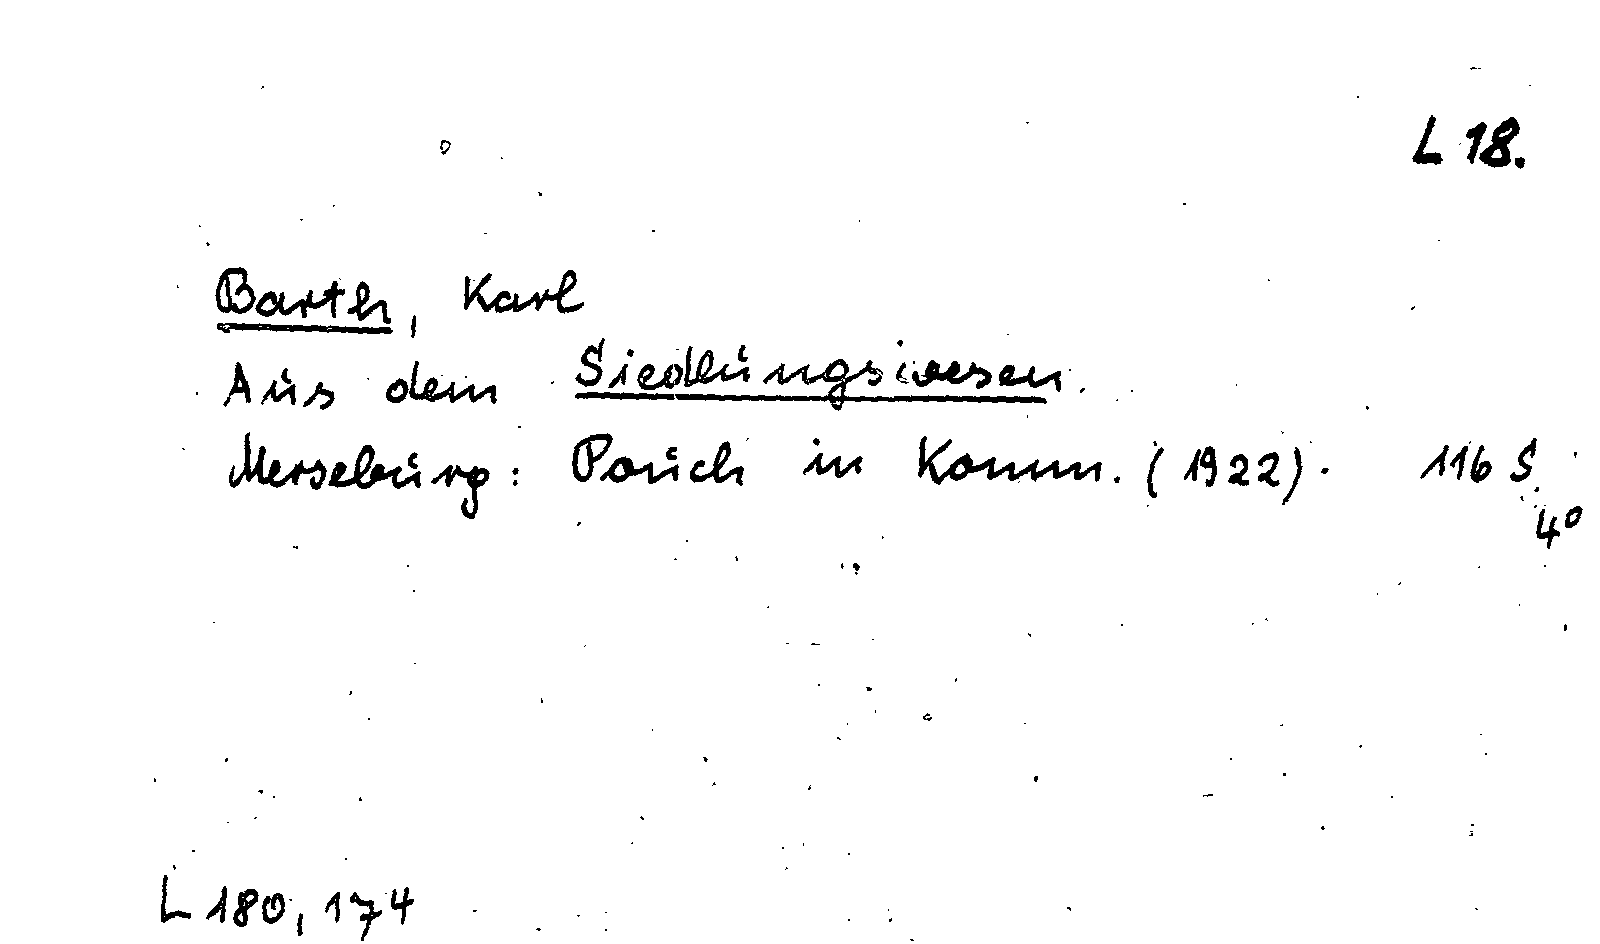 L 18.
Barth, Karl
Aus dem Siedlungswesen.
Merseburg: Pouch in Komm. (1922). 116 S.
4°
L 180, 174